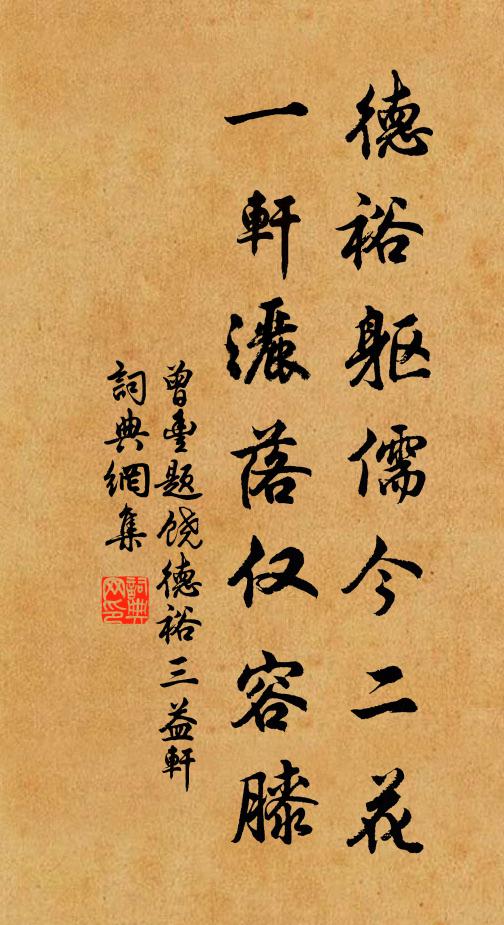 德裕躯儒今二花
一軒灑落仅容膝
曾豊题饶德裕三益軒
詞典網集
詞典
网印